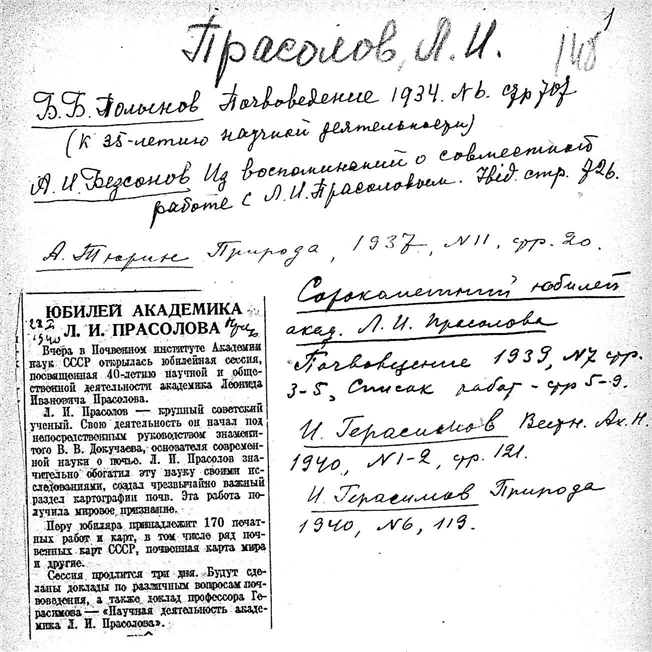 1
Прасолов, Л. И.
148
Б. Б. Полынов Почвоведение 1934. №6. стр 707
(К 35-летию научной деятельности)
А. И. Безсонов Из воспоминаний о совместной
работе с Л. И. Прасоловым. Ibid. стр. 726.
А. Тюрин Природа, 1937, №11, стр. 20.
ЮБИЛЕЙ АКАДЕМИКА
Л. И. ПРАСОЛОВА
1940
Вчера в Почвенном институте Академии
наук СССР открылась юбилейная сессия,
посвященная 40-летию научной и обще-
ственной деятельности академика Леонида
Ивановича Прасолова.
Л. И. Прасолов — крупный советский
ученый. Свою деятельность он начал под
непосредственным руководством знамени-
того В. В. Докучаева, основателя современ-
ной науки о почве. Л. И. Прасолов зна-
чительно обогатил эту науку своими ис-
следованиями, создал чрезвычайно важный
раздел картографии почв. Эта работа по-
лучила мировое признание.
Перу юбиляра принадлежит 170 печат-
ных работ и карт, в том числе ряд поч-
венных карт СССР, почвенная карта мира
и другие.
Сессия продлится три дня. Будут сде-
ланы доклады по различным вопросам поч-
воведения, а также доклад профессора Ге-
расимова — «Научная деятельность акаде-
мика Л. И. Прасолова».
Сорокалетний юбилей
акад. Л. И. Прасолова
Почвоведение 1939, №7 стр.
3-5, Список работ - стр 5-9.
И. Герасимов Вестн. Ак. Н.
1940, №1-2, стр. 121.
И. Герасимов Природа
1940, №6, 119.